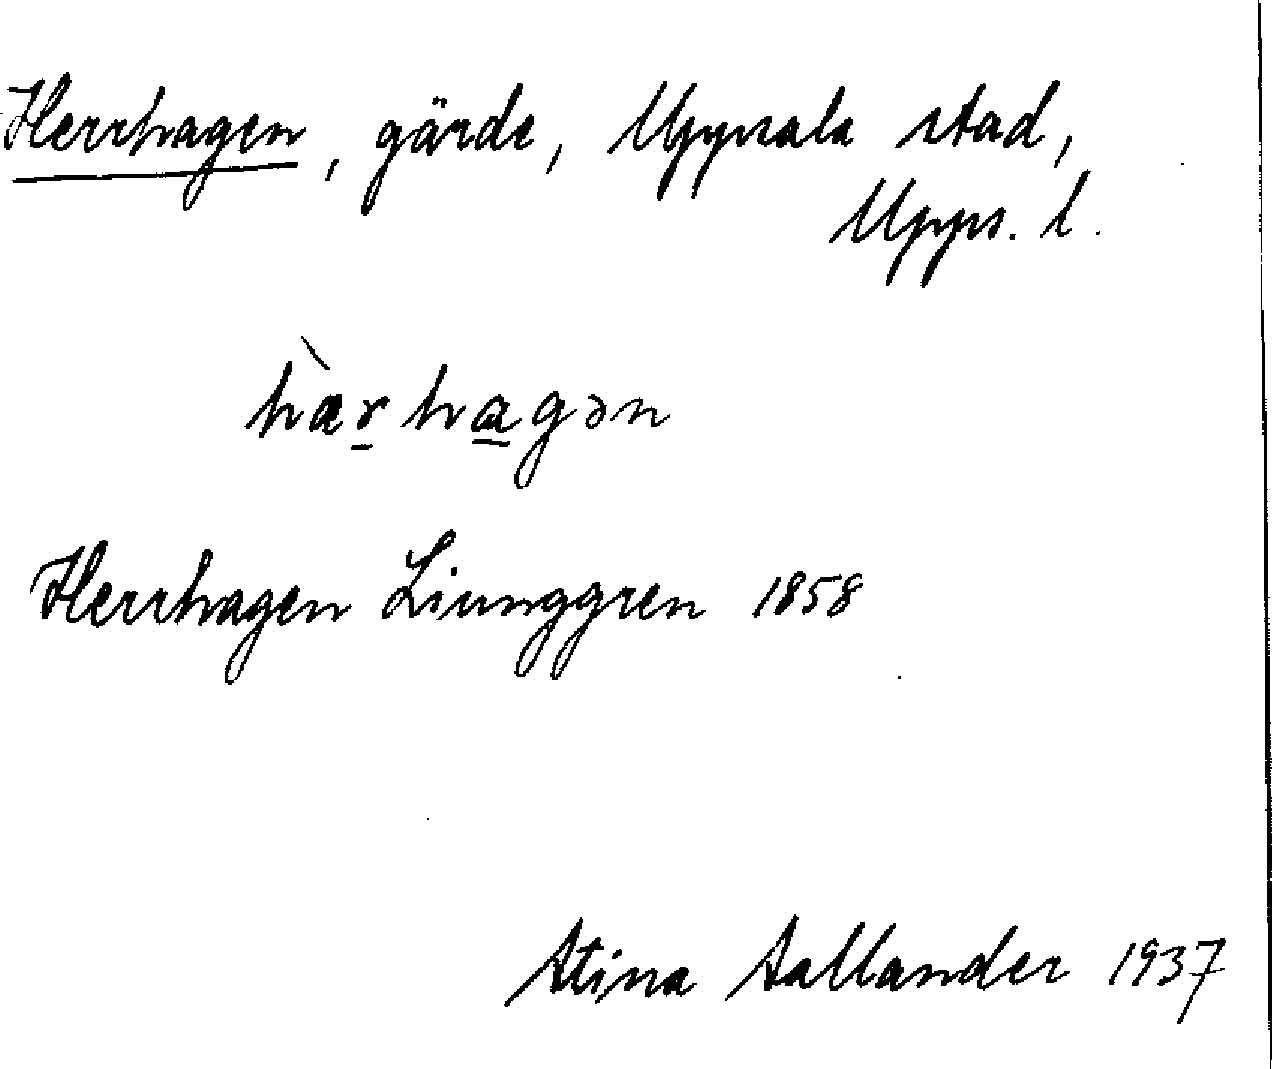 Herrhagen, gärde, Uppsala stad,
Upps. l.
hàrhagən
Herrhagen Liunggren 1858
Stina Sallander 1937